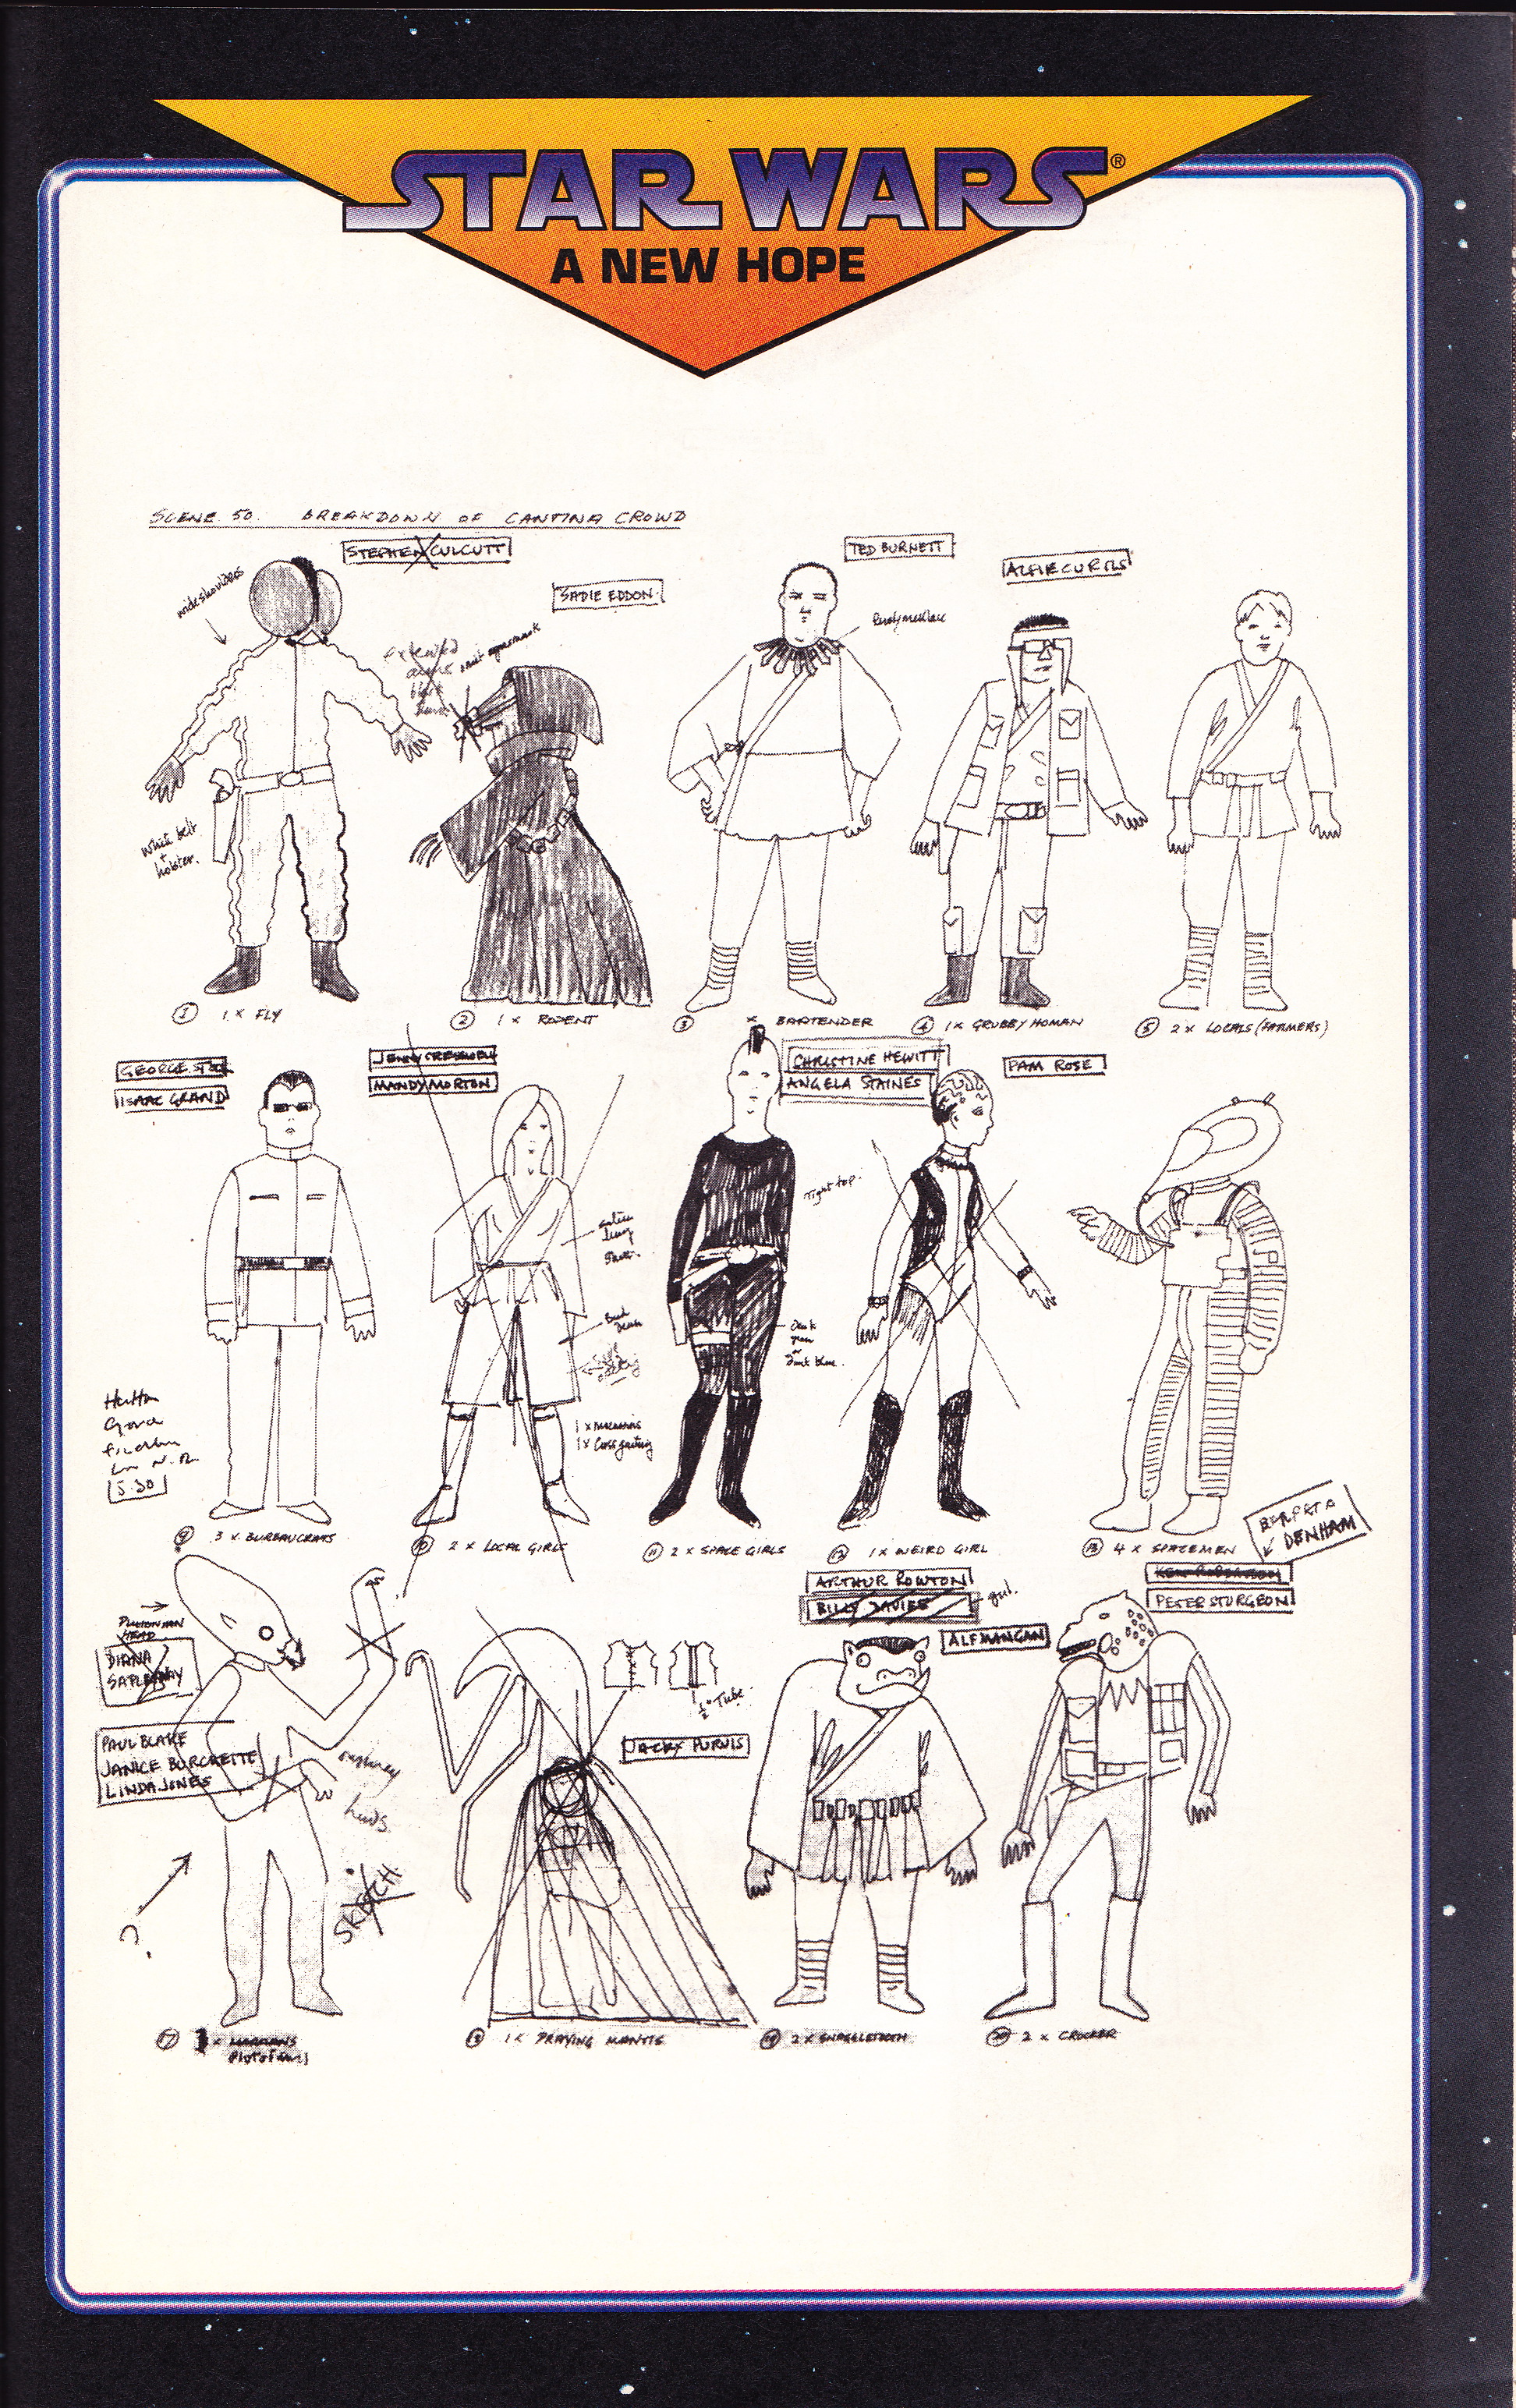 STAR WARS®
A NEW HOPE
SCENE 50. BREAKDOWN OF CANTINA CROWD
STEPHEN CULCUTT
TED BURNETT
ALFIE CURTIS
SADIE EDDON
wide shoulders
extended
arms
black
White belt
+
holster.
① 1 x FLY
② 1 x RODENT
③ x BARTENDER
④ 1 x GRUBBY HUMAN
⑤ 2 x LOCALS (FARMERS)
GEORGE STOCK
ISAAC GRAND
JENNY CRESSWELL
MANDY MORTON
CHRISTINE HEWITT
ANGELA STAINES
PAM ROSE
Tight top.
Dark
green
or
Dark blue.
1 x moccasins
1 x Cross gartering
5.30
⑨ 3 x BUREAUCRATS
⑩ 2 x LOCAL GIRLS
⑪ 2 x SPACE GIRLS
⑫ 1 x WEIRD GIRL
⑬ 4 x SPACEMEN
DENHAM
ARTHUR ROWTON
BILLY DAVIES
girl.
PETER STURGEON
ALF MANGAN
HEAD
DIANA
PAUL BLAKE
JANICE BURCHETTE
LINDA JONES
½" Tube.
JACKY PURVIS
SKETCH
?
⑰ x MARTIANS
⑱ 1 x PRAYING MANTIS
⑲ 2 x SNAGGLETOOTH
⑳ 2 x CROCKER